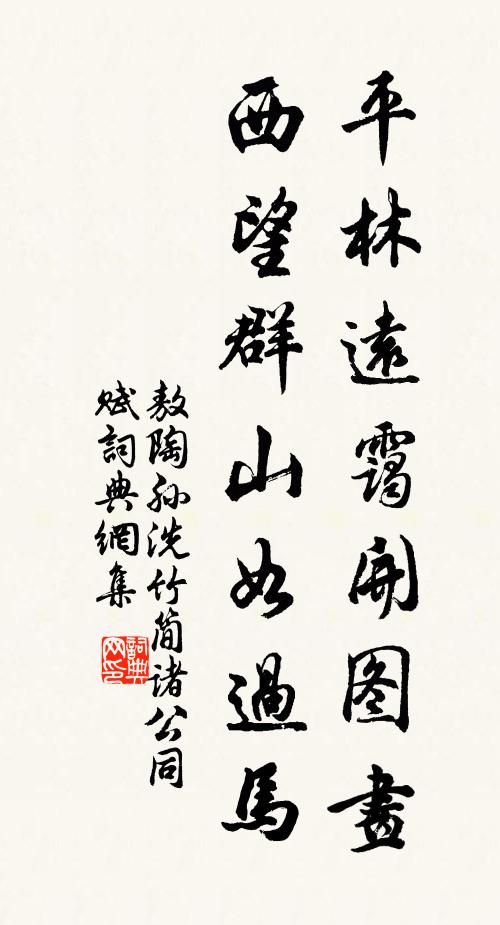 平林遠靄開图畫
西望群山如過馬
敖陶孙洗竹简诸公同
赋詞典網集
詞典网印